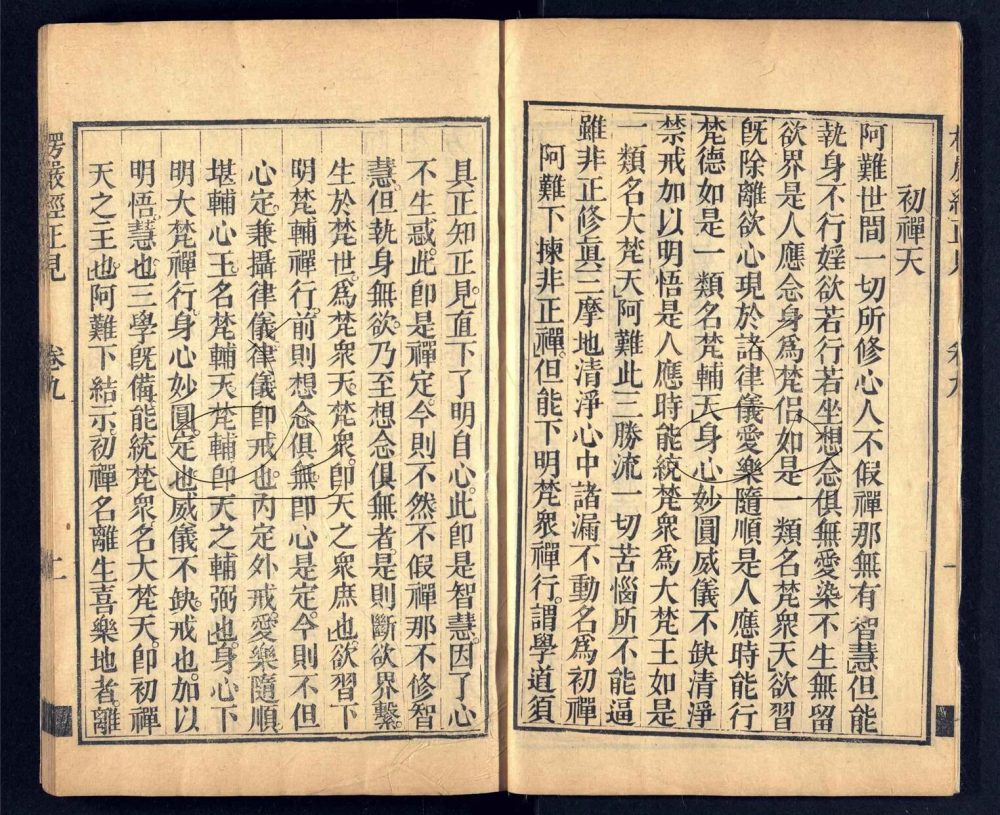 初禪天
阿難世間一切所修心人不假禪那無有智慧」但能
執身不行婬欲若行若坐想念俱無愛染不生無留
欲界是人應念身爲梵侶如是一類名梵衆天」欲習
旣除離欲心現於諸律儀愛樂隨順是人應時能行
梵德如是一類名梵輔天」身心妙圓威儀不缺清淨
禁戒加以明悟是人應時能統梵衆爲大梵王如是
一類名大梵天」阿難此三勝流一切苦惱所不能逼
雖非正修眞三摩地清淨心中諸漏不動名爲初禪
阿難下揀非正禪。」但能下明梵衆禪行。謂學道須
具正知正見。直下了明自心。此卽是智慧。因了心
不生惑。此卽是禪定。今則不然。不假禪那。不修智
慧。但執身無欲。乃至想念俱無者。是則斷欲界繫。
生於梵世。爲梵衆天。梵衆。卽天之衆庶也。」欲習下
明梵輔禪行。前則想念俱無。卽心是定。今則不但
心定。兼攝律儀。律儀卽戒也。內定外戒。愛樂隨順
堪輔心王。名梵輔天。梵輔卽天之輔弼也。」身心下
明大梵禪行。身心妙圓。定也。威儀不缺。戒也。加以
明悟。慧也。三學旣備。能統梵衆。名大梵天。卽初禪
天之王也。」阿難下結示。初禪名離生喜樂地者。離
楞嚴經正見 卷九